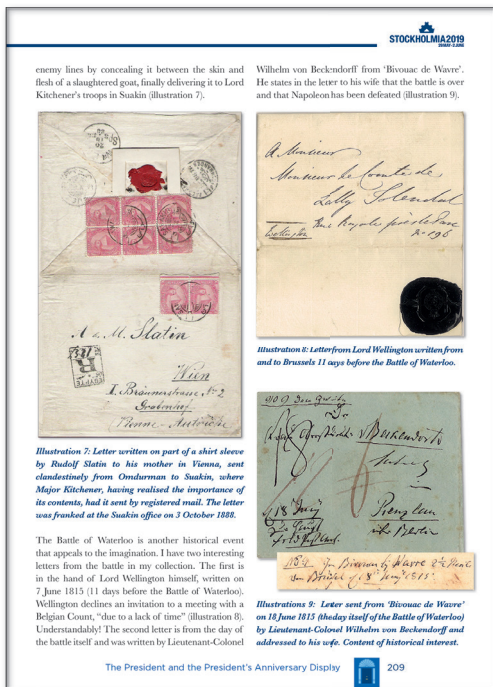 STOCKHOLMIA2019
29 MAY-2 JUNE
enemy lines by concealing it between the skin and
flesh of a slaughtered goat, finally delivering it to Lord
Kitchener's troops in Suakin (illustration 7).
A. d. M. Slatin
Wien
I. Bräunerstrasse, No 2
R
EGYPTE
Illustration 7: Letter written on part of a shirt sleeve
by Rudolf Slatin to his mother in Vienna, sent
clandestinely from Omdurman to Suakin, where
Major Kitchener, having realised the importance of
its contents, had it sent by registered mail. The letter
was franked at the Suakin office on 3 October 1888.
The Battle of Waterloo is another historical event
that appeals to the imagination. I have two interesting
letters from the battle in my collection. The first is
in the hand of Lord Wellington himself, written on
7 June 1815 (11 days before the Battle of Waterloo).
Wellington declines an invitation to a meeting with a
Belgian Count, "due to a lack of time" (illustration 8).
Understandably! The second letter is from the day of
the battle itself and was written by Lieutenant-Colonel
Wilhelm von Beckendorff from 'Bivouac de Wavre'.
He states in the letter to his wife that the battle is over
and that Napoleon has been defeated (illustration 9).
A Monsieur
Monsieur le Comte de
Lally Tolendal
Rue Royale près le Parc
Wellington
Illustration 8: Letter from Lord Wellington written from
and to Brussels 11 days before the Battle of Waterloo.
v Beckendorff
Prenzlau
Berlin
Illustrations 9: Letter sent from 'Bivouac de Wavre'
on 18 June 1815 (the day itself of the Battle of Waterloo)
by Lieutenant-Colonel Wilhelm von Beckendorff and
addressed to his wife. Content of historical interest.
The President and the President's Anniversary Display
209